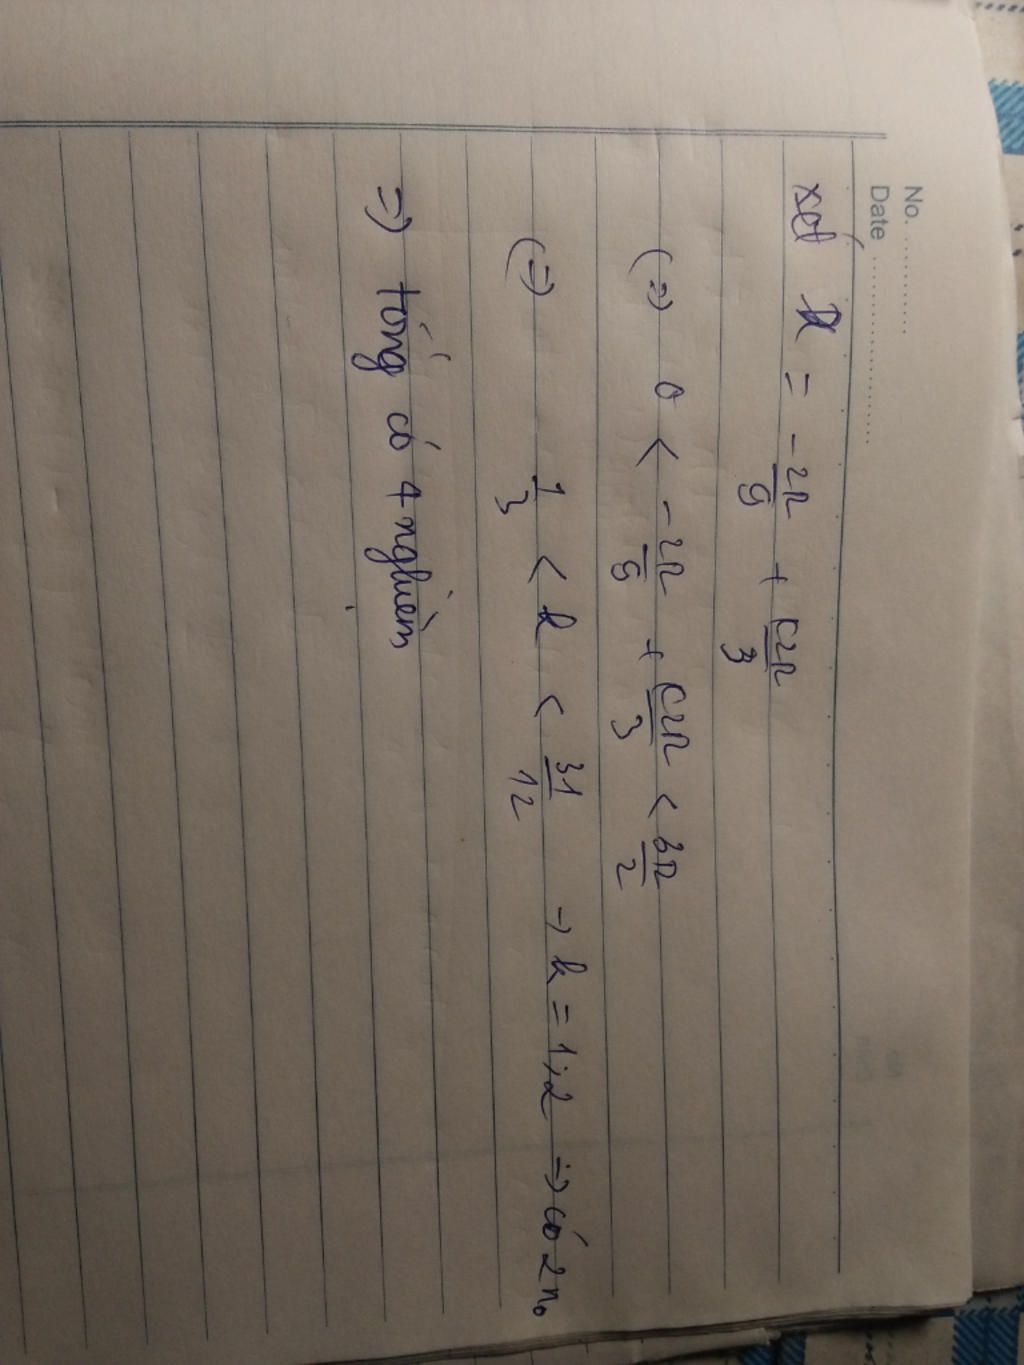 No. ............
Date ........................
xét x = -2π/9 + k2π/3
(=) 0 < -2π/9 + k2π/3 < 3π/2
(=) 1/3 < k < 31/12 → k = 1; 2 => có 2 no
=> tổng có 4 nghiệm